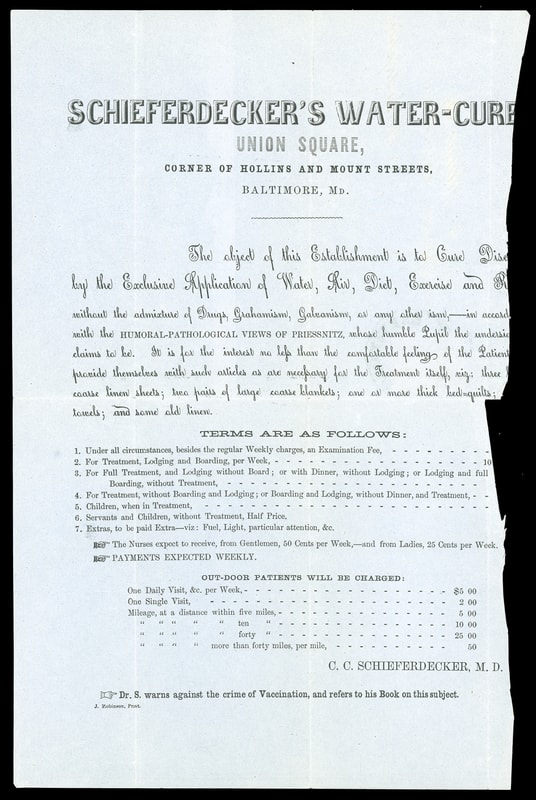 SCHIEFERDECKER'S WATER-CURE
UNION SQUARE,
CORNER OF HOLLINS AND MOUNT STREETS,
BALTIMORE, MD.
The object of this Establishment is to Cure Dise
by the Exclusive Application of Water, Air, Diet, Exercise and R
without the admixture of Drugs, Grahamism, Galvanism, or any other ism,—in accord
with the HUMORAL-PATHOLOGICAL VIEWS OF PRIESSNITZ, whose humble Pupil the undersig
claims to be. It is for the interest no less than the comfortable feeling of the Patient
provide themselves with such articles as are necessary for the Treatment itself, viz: three
coarse linen sheets; two pairs of large coarse blankets; one or more thick bed-quilts;
towels; and some old linen.
TERMS ARE AS FOLLOWS:
1. Under all circumstances, besides the regular Weekly charges, an Examination Fee, - - - - - - - - -
2. For Treatment, Lodging and Boarding, per Week, - - - - - - - - - - - - - - - - - 10
3. For Full Treatment, and Lodging without Board; or with Dinner, without Lodging; or Lodging and full
Boarding, without Treatment, - - - - - - - - - - - - - - - - - - - - -
4. For Treatment, without Boarding and Lodging; or Boarding and Lodging, without Dinner, and Treatment, - -
5. Children, when in Treatment, - - - - - - - - - - - - - - - - - - - - - - -
6. Servants and Children, without Treatment, Half Price,
7. Extras, to be paid Extra—viz: Fuel, Light, particular attention, &c.
☞ The Nurses expect to receive, from Gentlemen, 50 Cents per Week,—and from Ladies, 25 Cents per Week.
☞ PAYMENTS EXPECTED WEEKLY.
OUT-DOOR PATIENTS WILL BE CHARGED:
One Daily Visit, &c. per Week, - - - - - - - - - - - - - - - - - $5 00
One Single Visit, - - - - - - - - - - - - - - - - - - - - 2 00
Mileage, at a distance within five miles, - - - - - - - - - - - - - - 5 00
" " " " " ten " - - - - - - - - - - - - - - 10 00
" " " " " forty " - - - - - - - - - - - - - - 25 00
" " " " more than forty miles, per mile, - - - - - - - - - - 50
C. C. SCHIEFERDECKER, M. D.
☞ Dr. S. warns against the crime of Vaccination, and refers to his Book on this subject.
J. Robinson, Print.